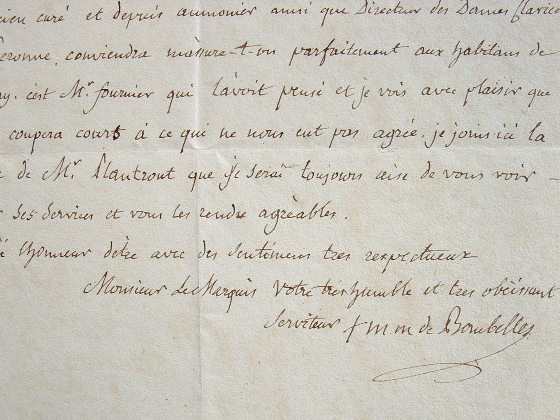 ien curé et depuis aumonier ainsi que Directeur des Dames
éronne, conviendra m'assure-t-on parfaitement aux habitans de
ay. c'est Mr. fournier qui l'avoit pensé et je vois avec plaisir que
coupera court à ce qui ne nous eut pas agréé. je joins ici la
de Mr. Plantrout que je serai toujours aise de vous voir -
ses services et vous les rendre agréables.
l'honneur detre avec des sentimens tres respectueux
Monsieur Le Marquis Votre tres humble et tres obéissant
Serviteur + m m de Bombelles